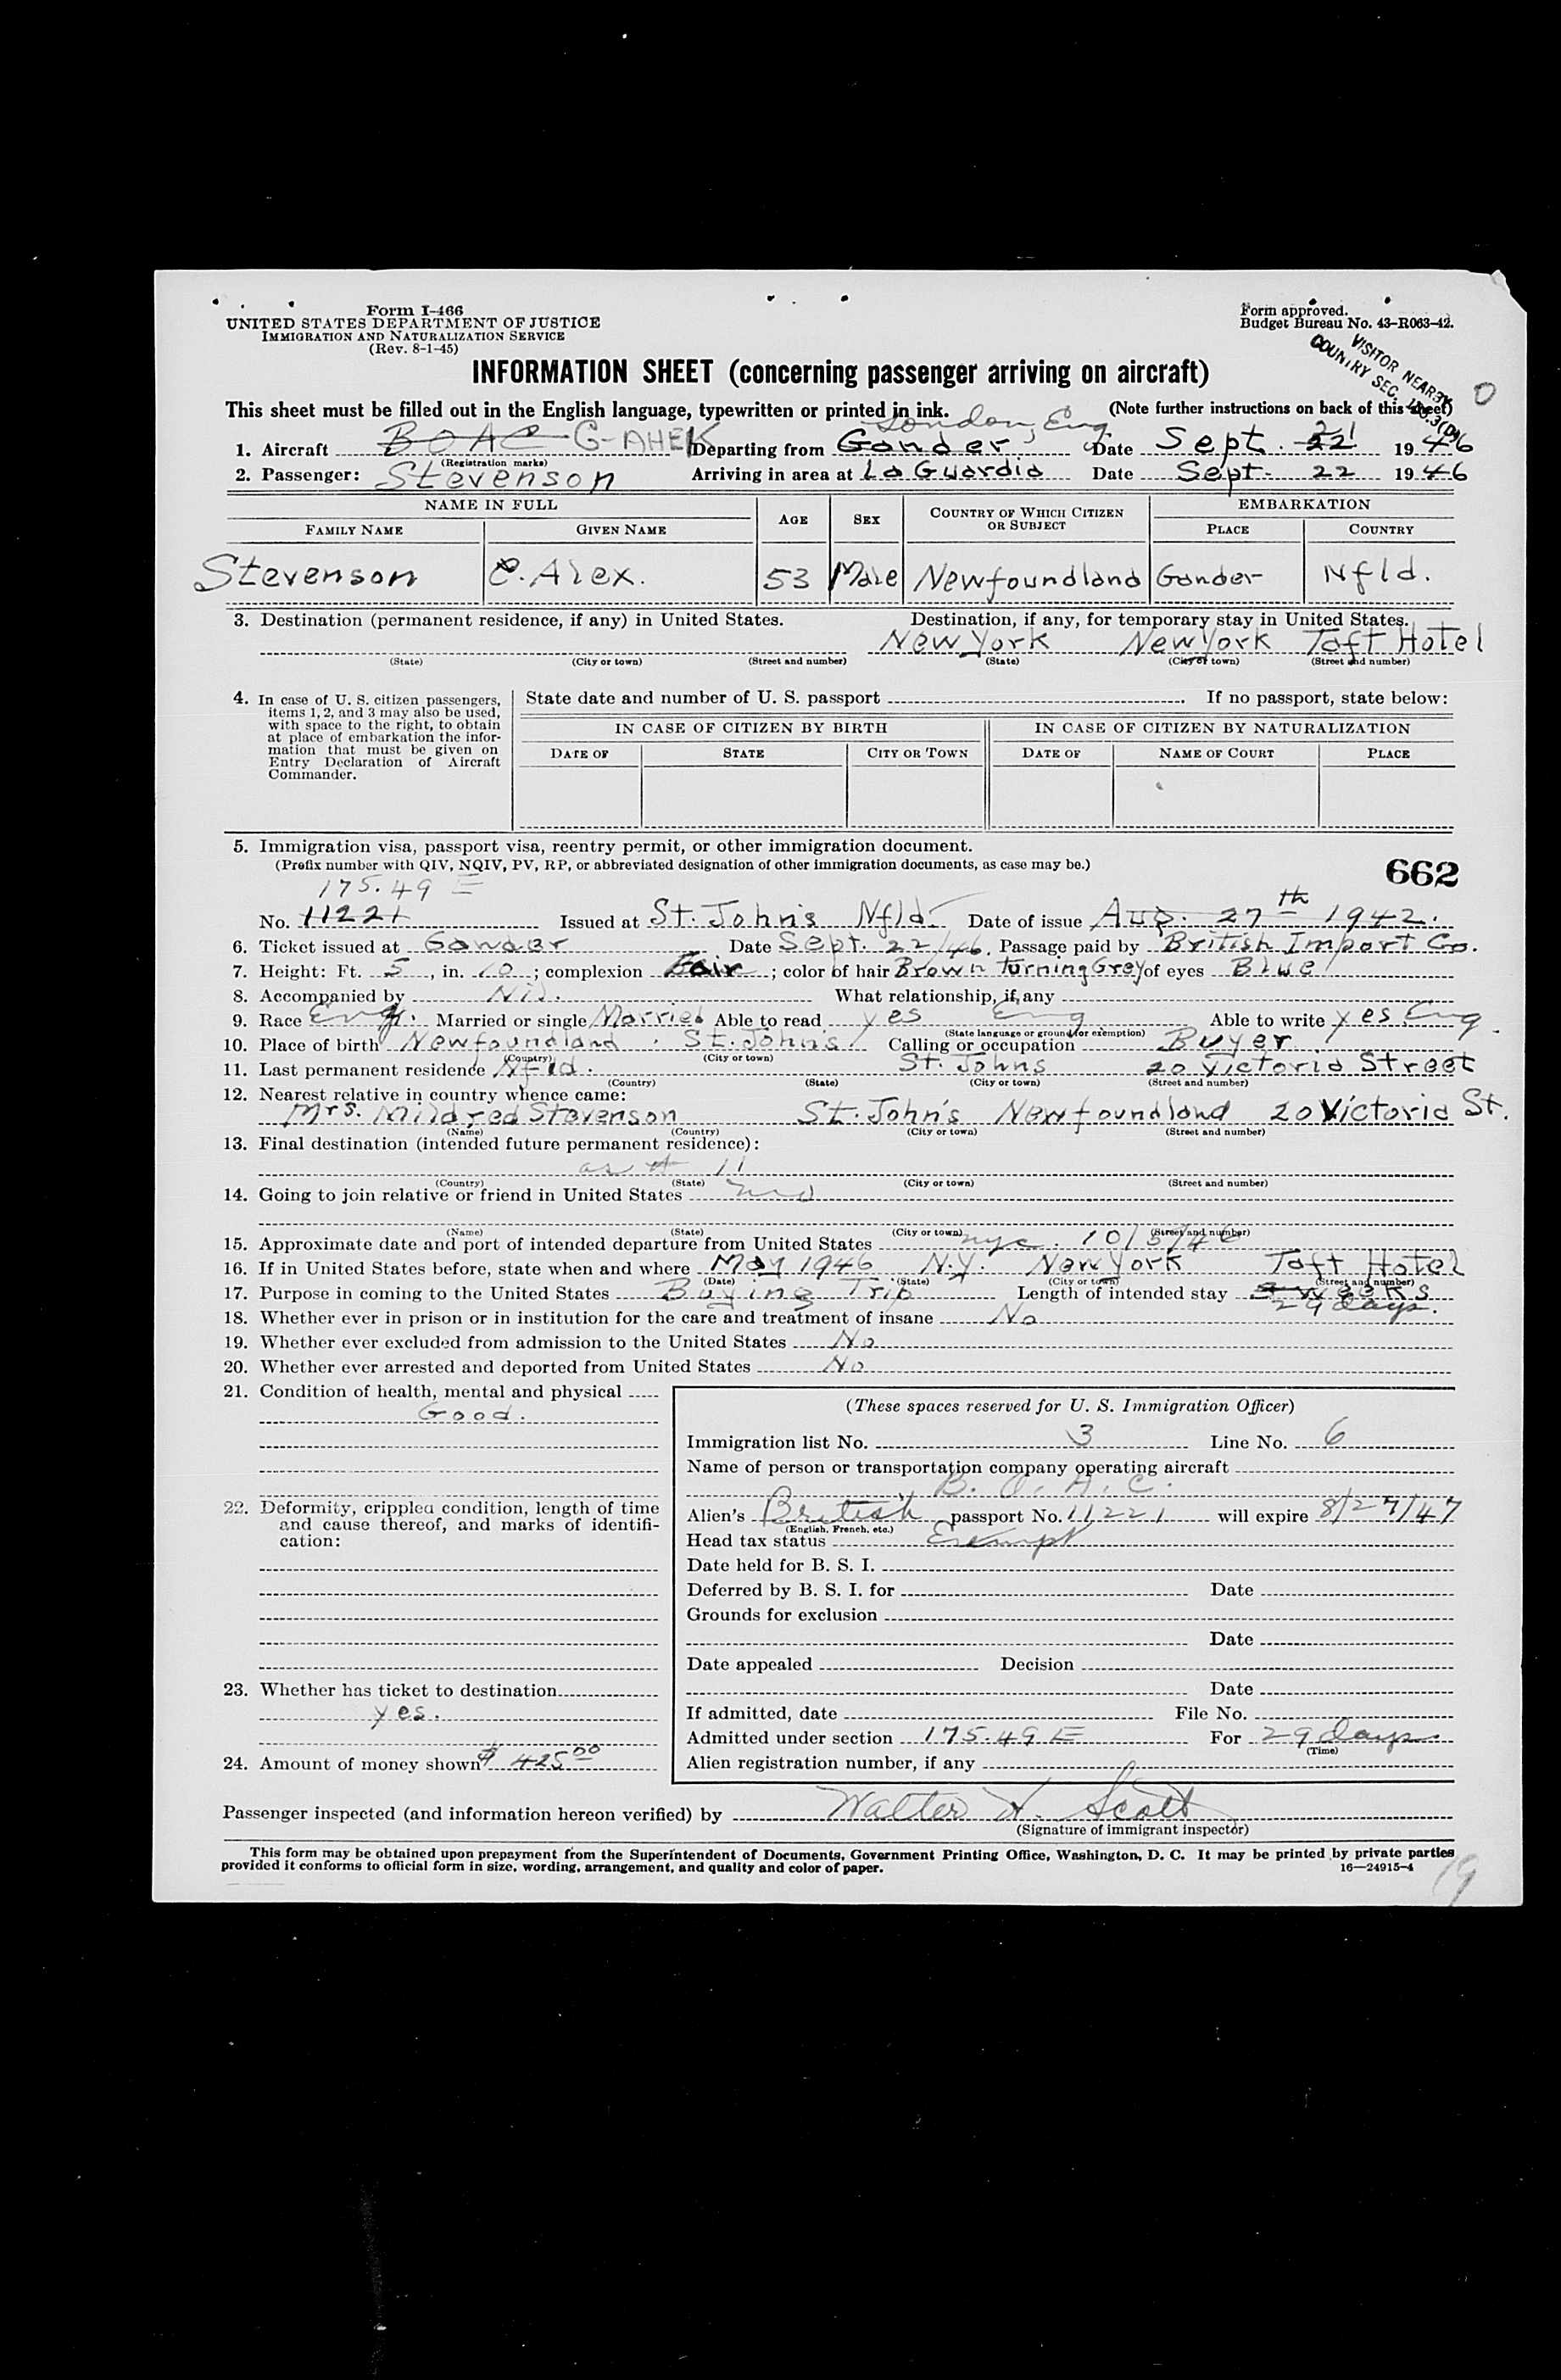 Form I-466
UNITED STATES DEPARTMENT OF JUSTICE
IMMIGRATION AND NATURALIZATION SERVICE
(Rev. 8-1-45)
Form approved.
Budget Bureau No. 43-R063-42.
VISITOR NEARBY
COUNTRY SEC.
INFORMATION SHEET (concerning passenger arriving on aircraft)
This sheet must be filled out in the English language, typewritten or printed in ink. (Note further instructions on back of this sheet) 0
London, Eng
1. Aircraft BOAC G-AHEK Departing from Gander Date Sept. 22 21 1946
(Registration marks)
2. Passenger: Stevenson Arriving in area at La Guardia Date Sept. 22 1946
NAME IN FULL AGE SEX COUNTRY OF WHICH CITIZEN OR SUBJECT EMBARKATION
FAMILY NAME GIVEN NAME PLACE COUNTRY
Stevenson C. Alex. 53 Male Newfoundland Gander Nfld.
3. Destination (permanent residence, if any) in United States. Destination, if any, for temporary stay in United States.
New York New York Taft Hotel
(State) (City or town) (Street and number) (State) (City or town) (Street and number)
4. In case of U. S. citizen passengers, items 1, 2, and 3 may also be used, with space to the right, to obtain at place of embarkation the information that must be given on Entry Declaration of Aircraft Commander.
State date and number of U. S. passport If no passport, state below:
IN CASE OF CITIZEN BY BIRTH IN CASE OF CITIZEN BY NATURALIZATION
DATE OF STATE CITY OR TOWN DATE OF NAME OF COURT PLACE
5. Immigration visa, passport visa, reentry permit, or other immigration document.
(Prefix number with QIV, NQIV, PV, RP, or abbreviated designation of other immigration documents, as case may be.)
662
175.49 E
No. 11221 Issued at St. John's Nfld. Date of issue Aug. 27th 1942.
6. Ticket issued at Gander Date Sept. 22/46. Passage paid by British Import Co.
7. Height: Ft. 5, in. 10; complexion Fair; color of hair Brown turning Grey of eyes Blue
8. Accompanied by Nil. What relationship, if any
9. Race Eng. Married or single Married Able to read yes Eng Able to write yes Eng.
(State language or ground for exemption)
10. Place of birth Newfoundland. St. John's Calling or occupation Buyer
(Country) (City or town)
11. Last permanent residence Nfld. St. Johns 20 Victoria Street
(Country) (State) (City or town) (Street and number)
12. Nearest relative in country whence came:
Mrs. Mildred Stevenson St. John's Newfoundland 20 Victoria St.
(Name) (Country) (City or town) (Street and number)
13. Final destination (intended future permanent residence):
as # 11
(Country) (State) (City or town) (Street and number)
14. Going to join relative or friend in United States no
(Name) (State) (City or town) (Street and number)
15. Approximate date and port of intended departure from United States nyc. 10/5/46
16. If in United States before, state when and where May 1946 N.Y. New York Taft Hotel
(Date) (State) (City or town) (Street and number)
17. Purpose in coming to the United States Buying Trip Length of intended stay weeks
29 days.
18. Whether ever in prison or in institution for the care and treatment of insane No
19. Whether ever excluded from admission to the United States No
20. Whether ever arrested and deported from United States No
21. Condition of health, mental and physical
Good.
22. Deformity, crippled condition, length of time and cause thereof, and marks of identification:
23. Whether has ticket to destination
yes.
24. Amount of money shown $ 425.00
(These spaces reserved for U. S. Immigration Officer)
Immigration list No. 3 Line No. 6
Name of person or transportation company operating aircraft
B. O. A. C.
Alien's British passport No. 11221 will expire 8/27/47
(English, French, etc.)
Head tax status Exempt
Date held for B. S. I.
Deferred by B. S. I. for Date
Grounds for exclusion
Date
Date appealed Decision
Date
If admitted, date File No.
Admitted under section 175.49 E For 29 days
(Time)
Alien registration number, if any
Passenger inspected (and information hereon verified) by Walter H. Scott
(Signature of immigrant inspector)
This form may be obtained upon prepayment from the Superintendent of Documents, Government Printing Office, Washington, D. C. It may be printed by private parties
provided it conforms to official form in size, wording, arrangement, and quality and color of paper. 16—24915-4
19